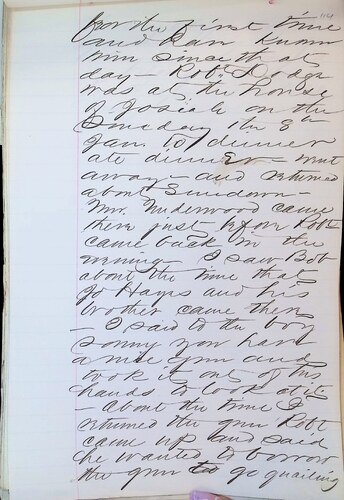 114
for the first time
and han known
him since that
day – Rob. Dodge
was at the house
of Josiah on the
Sunday the 8th
Jan. to dinner
ate dinner – went
away – and returned
about Sundown –
Mr. Underwood came
there just before Robt
came back in the
evening – I saw Bob
about the time that
Jo Hays and his
brother came there
– I said to the boy
sonny you have
a nice gun and
took it out of his
hands to look at it
– about the time I
returned the gun Robt
came up and said
he wanted to borrow
the gun to go quailing